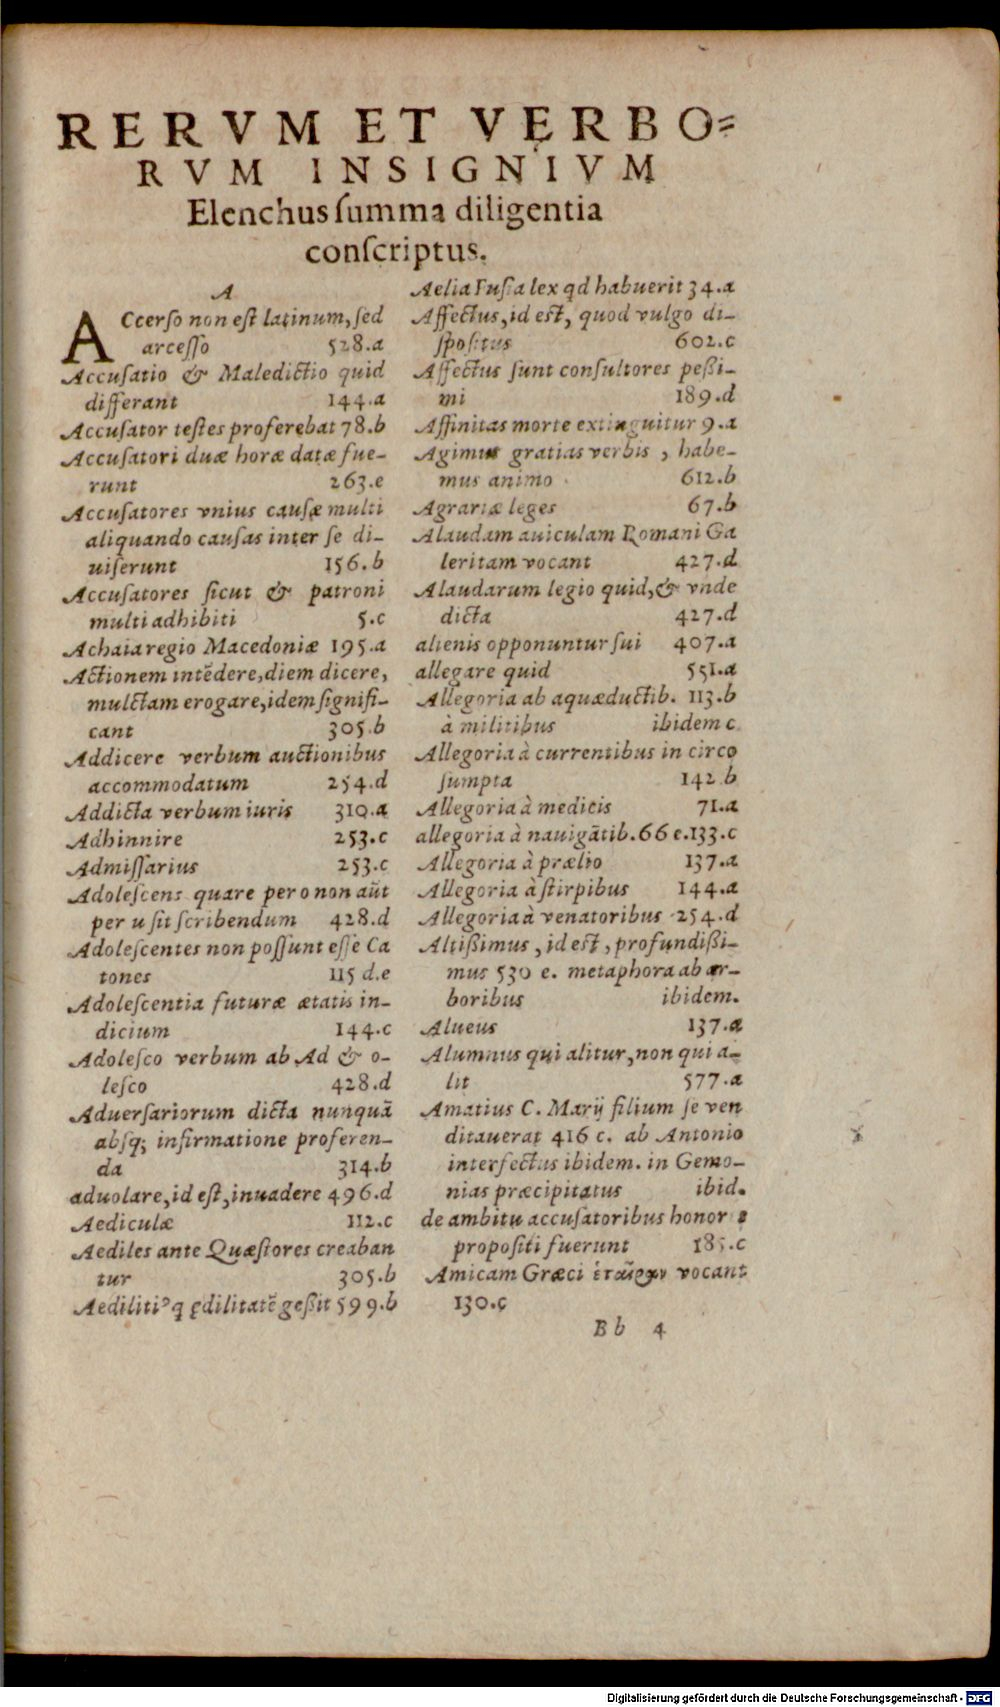 RERVM ET VERBO=
RVM INSIGNIVM
Elenchus ſumma diligentia
conſcriptus.
A
ACcerſo non eſt latinum, ſed
arceſſo 528.a
Accuſatio & Maledictio quid
differant 144.a
Accuſator teſtes proferebat 78.b
Accuſatori duæ horæ datæ fue-
runt 263.e
Accuſatores vnius cauſæ multi
aliquando cauſas inter ſe di-
uiſerunt 156.b
Accuſatores ſicut & patroni
multi adhibiti 5.c
Achaia regio Macedoniæ 195.a
Actionem intēdere, diem dicere,
mulctam erogare, idem ſignifi-
cant 305.b
Addicere verbum auctionibus
accommodatum 254.d
Addicta verbum iuris 310.a
Adhinnire 253.c
Admiſſarius 253.c
Adoleſcens quare per o non aūt
per u ſit ſcribendum 428.d
Adoleſcentes non poſſunt eſſe Ca
tones 115 d.e
Adoleſcentia futuræ ætatis in-
dicium 144.c
Adoleſco verbum ab Ad & o-
leſco 428.d
Aduerſariorum dicta nunquā
abſq; infirmatione proferen-
da 314.b
aduolare, id eſt, inuadere 496.d
Aediculæ 112.c
Aediles ante Quæſtores creaban
tur 305.b
Aediliti⁹ q ędilitatē geßit 599.b
Aelia Fuſia lex qd habuerit 34.a
Affectus, id eſt, quod vulgo di-
ſpoſitus 602.c
Affectus ſunt conſultores peßi-
mi 189.d
Affinitas morte extinguitur 9.a
Agimus gratias verbis, habe-
mus animo 612.b
Agrariæ leges 67.b
Alaudam auiculam Romani Ga
leritam vocant 427.d
Alaudarum legio quid, & vnde
dicta 427.d
alienis opponuntur ſui 407.a
allegare quid 551.a
Allegoria ab aquæductib. 113.b
à militibus ibidem c.
Allegoria à currentibus in circo
ſumpta 142 b
Allegoria à medicis 71.a
allegoria à nauigātib. 66 e. 133.c
Allegoria à prælio 137.a
Allegoria à ſtirpibus 144.a
Allegoria à venatoribus 254.d
Altißimus, id eſt, profundißi-
mus 530 e. metaphora ab ar-
boribus ibidem.
Alueus 137.a
Alumnus qui alitur, non qui a-
lit 577.a
Amatius C. Marij filium ſe ven
ditauerat 416 c. ab Antonio
interfectus ibidem. in Gemo-
nias præcipitatus ibid.
de ambitu accuſatoribus honor
propoſiti fuerunt 185.c
Amicam Græci ἑταῖραν vocant
130.c
Bb 4
Digitalisierung gefördert durch die Deutsche Forschungsgemeinschaft - DFG